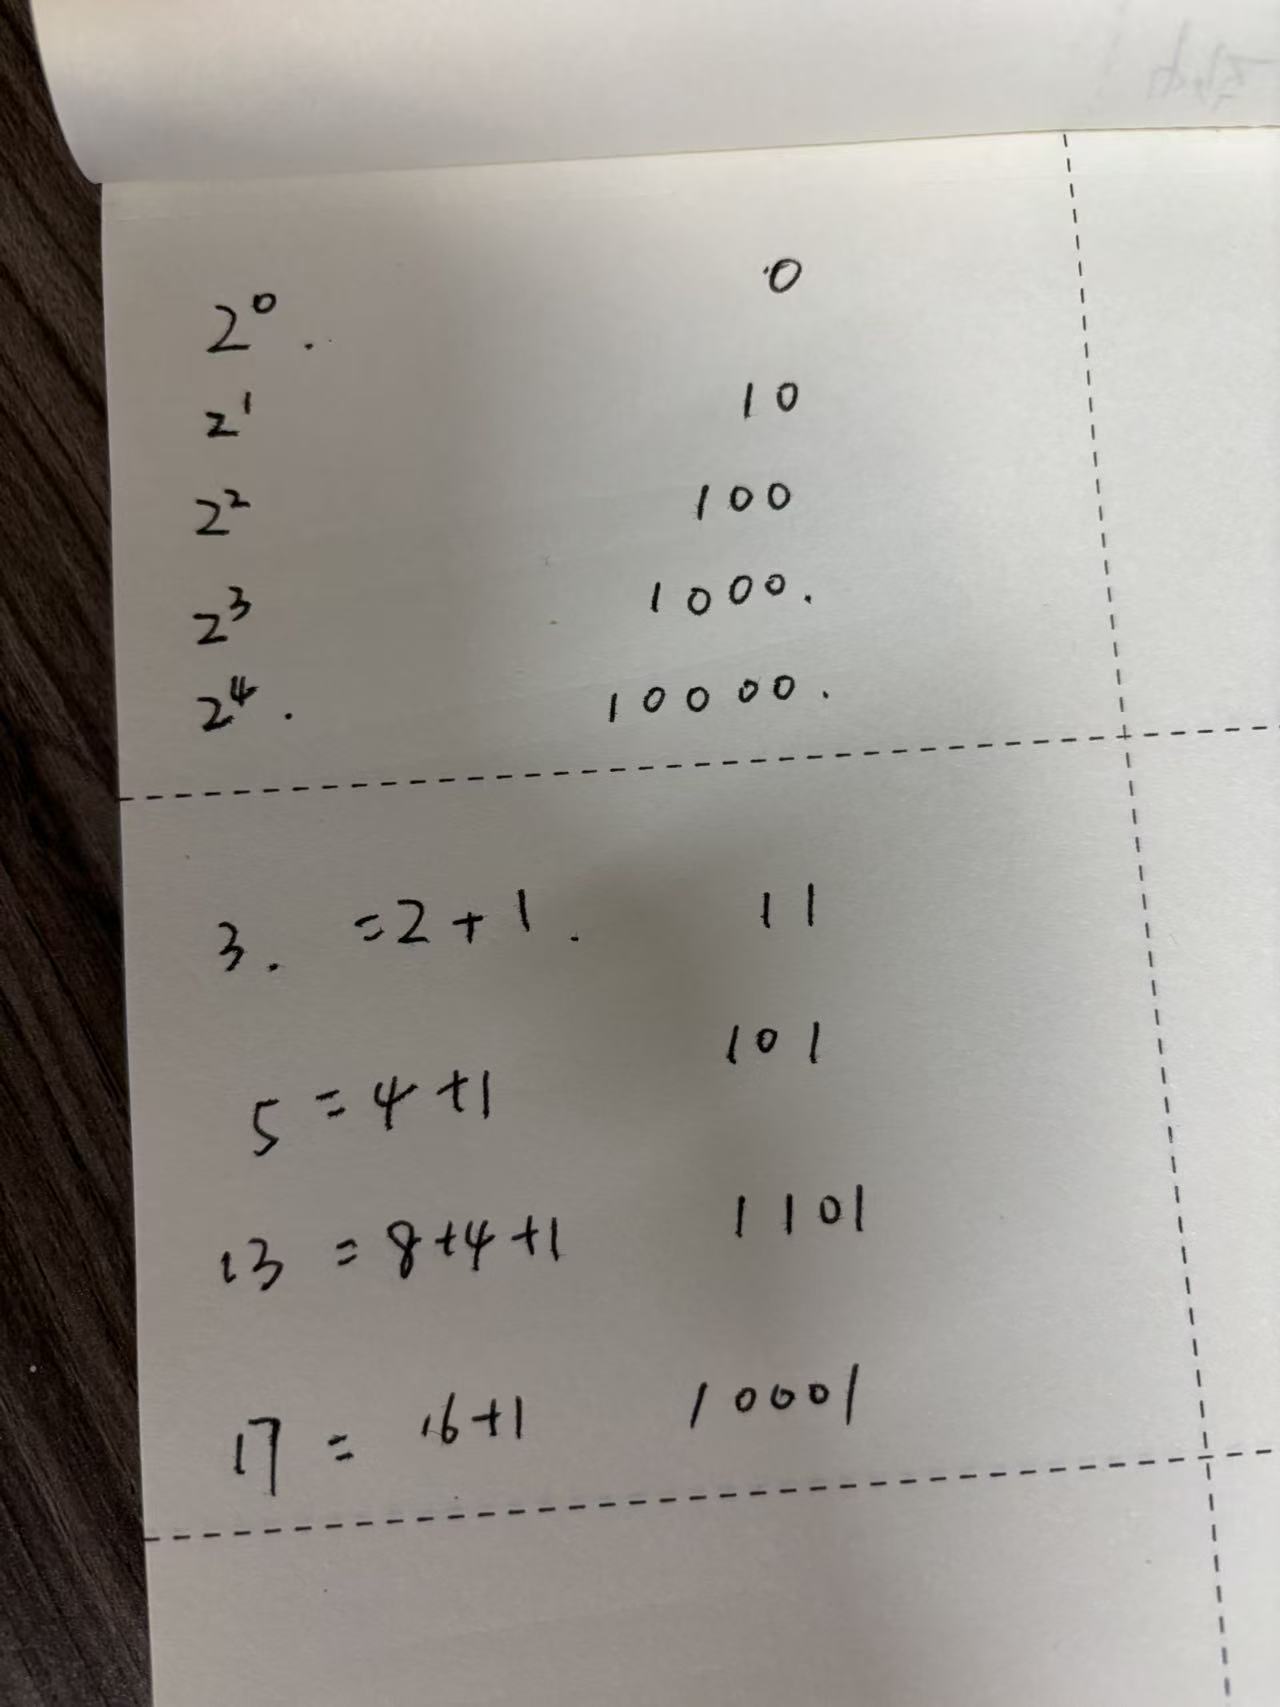 2⁰. 0
2¹ 10
2² 100
2³ 1000.
2⁴. 10000.
3. =2+1. 11
5=4+1 101
13=8+4+1 1101
17= 16+1 10001